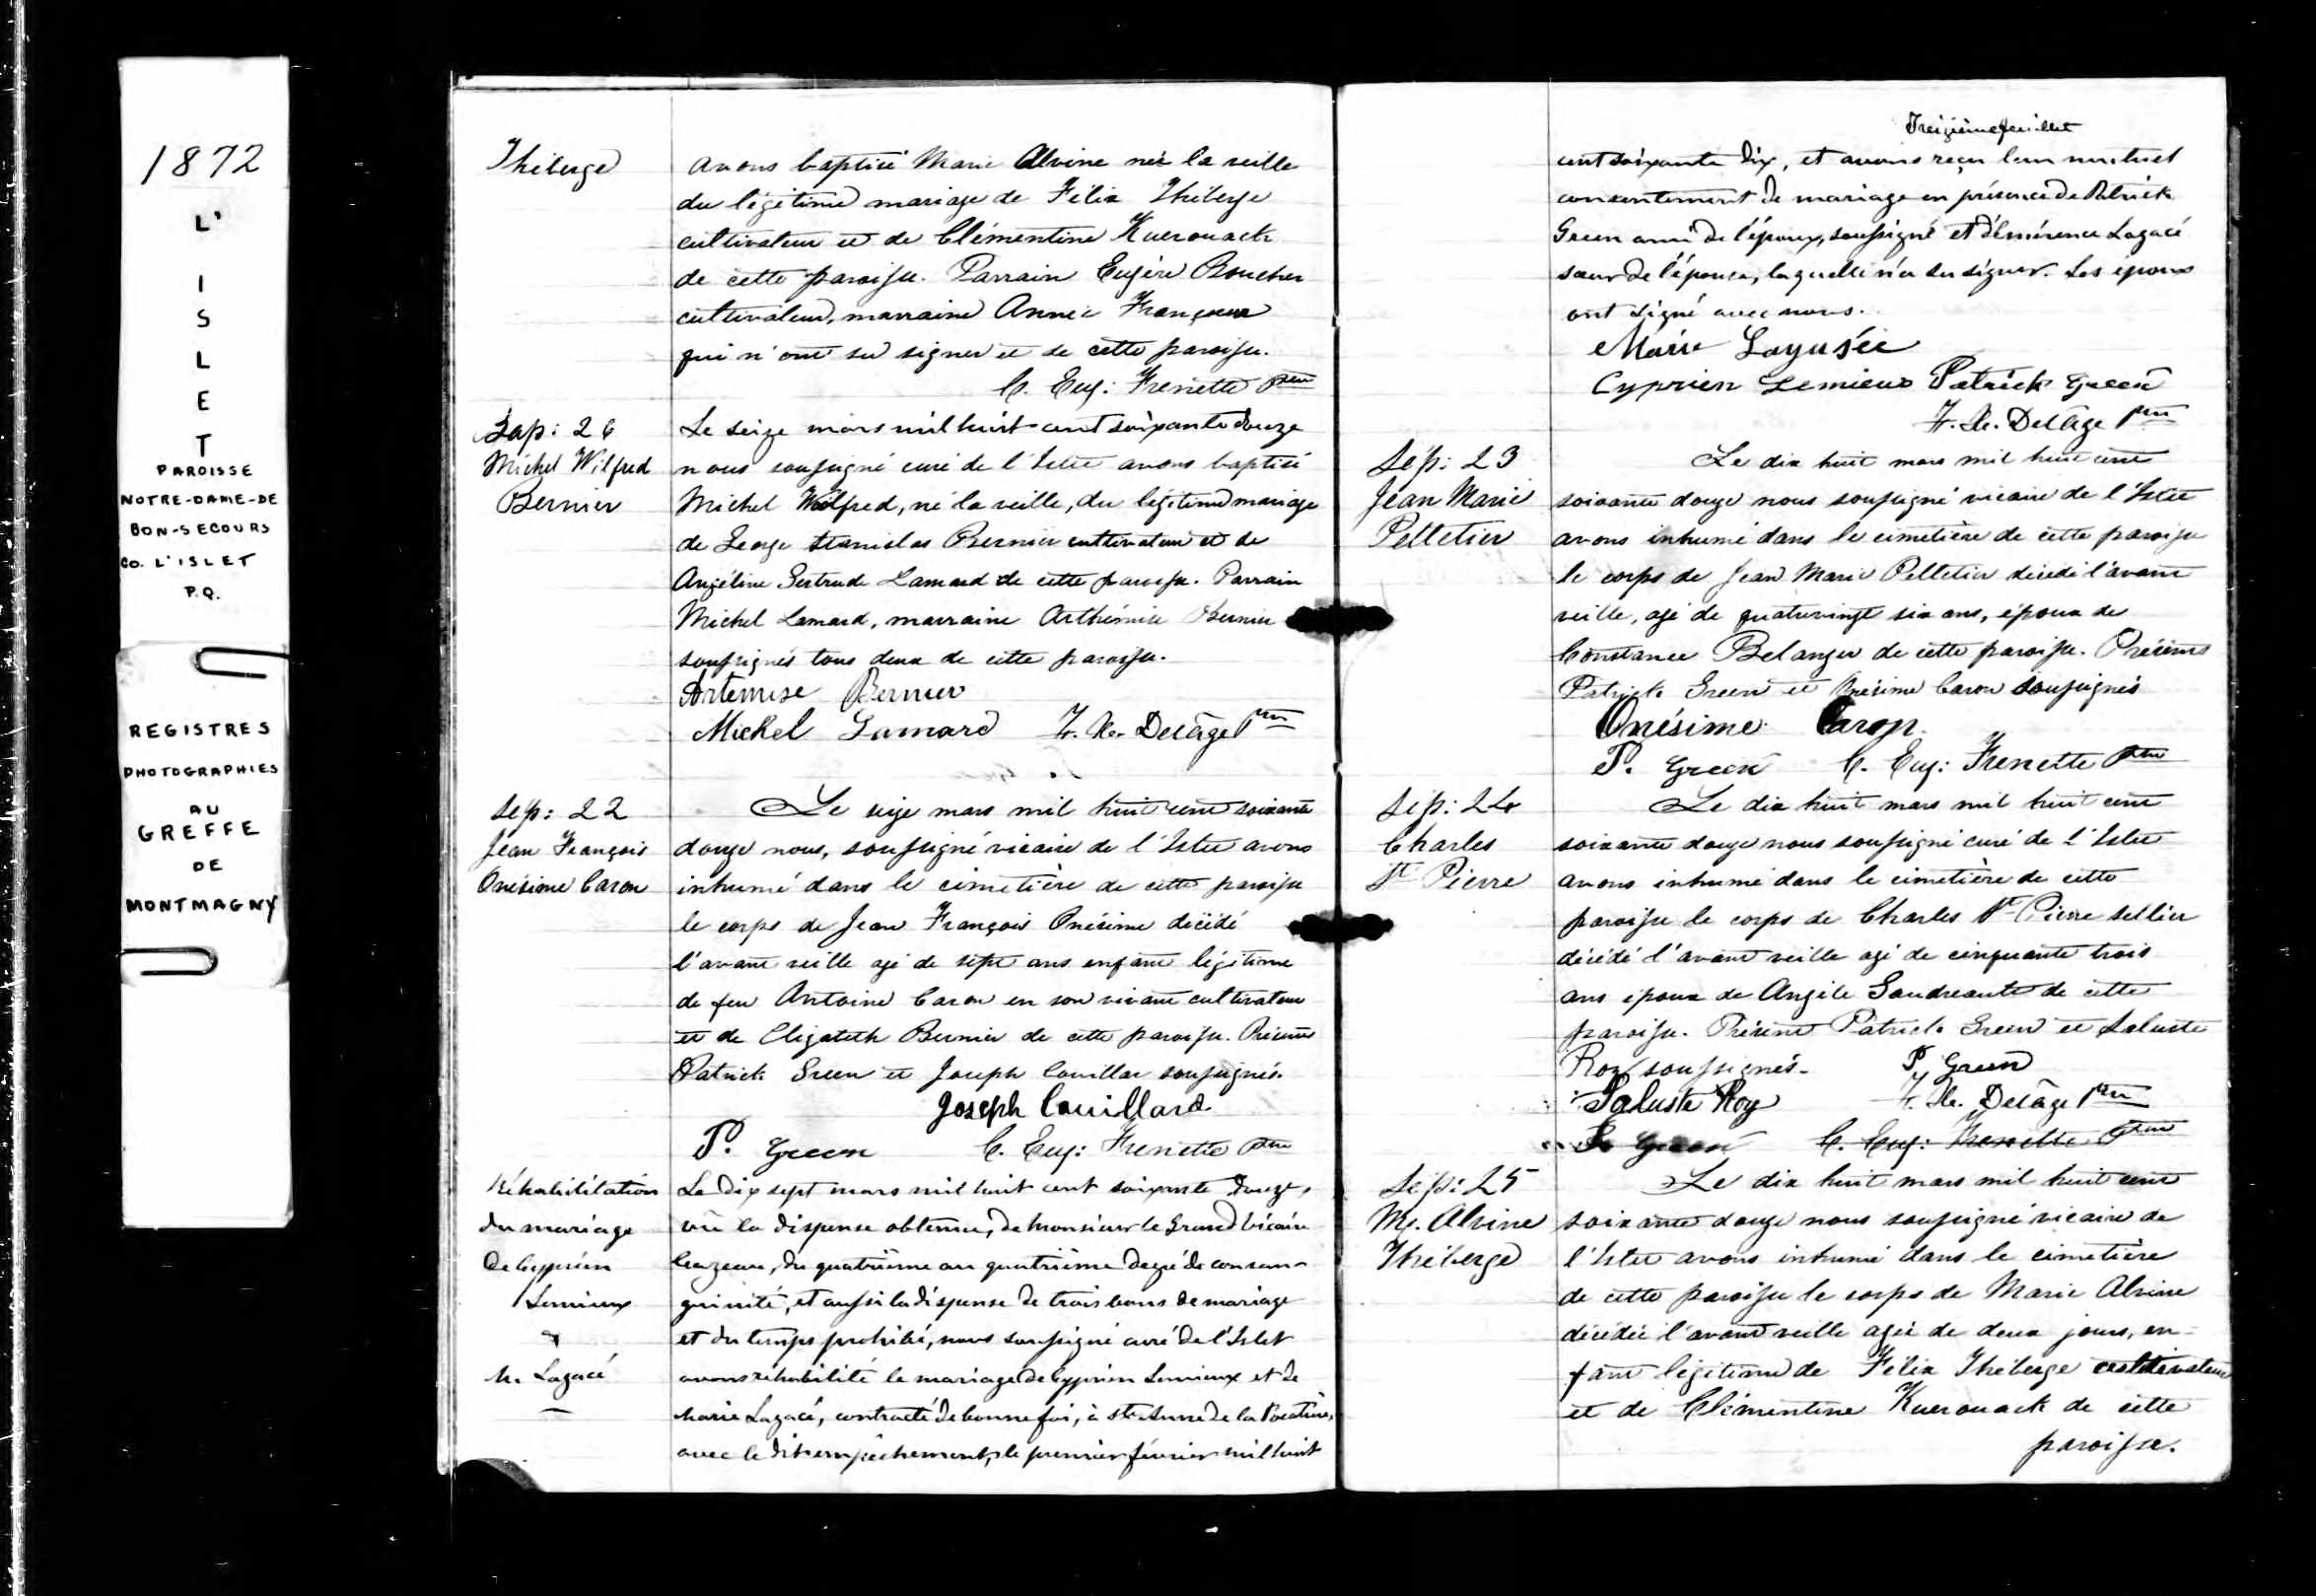 1872
L'
I
S
L
E
T
PAROISSE
NOTRE-DAME-DE
BON-SECOURS
CO. L'ISLET
P.Q.
REGISTRES
PHOTOGRAPHIES
AU
GREFFE
DE
MONTMAGNY
Théberge
avons baptisé Marie Alvine née la veille
du légitime mariage de Félix Théberge
cultivateur et de Clémentine Kuerouack
de cette paroisse. Parrain Eugère Boucher
cultivateur, marraine Annie Françoeur
qui n'ont su signer et de cette paroisse.
C. Eug: Frenette Ptre
Bap: 26
Michel Wilfred
Bernier
Le seize mars mil huit cent soixante douze
nous soussigné curé de l'Islet avons baptisé
Michel Wilfred, né la veille, du légitime mariage
de George Stanislas Bernier cultivateur et de
Angéline Gertrude Lamard de cette paroisse. Parrain
Michel Lamard, marraine Arthémise Bernier
soussignés tous deux de cette paroisse.
Artemise Bernier
Michel Lamard F. X. Delâge Ptre
Sep: 22
Jean François
Onésime Caron
Le seize mars mil huit cent soixante
douze nous, soussigné vicaire de l'Islet avons
inhumé dans le cimetière de cette paroisse
le corps de Jean François Onésime décédé
l'avant veille agé de sept ans enfant légitime
de feu Antoine Caron en son vivant cultivateur
et de Elizabeth Bernier de cette paroisse. Présents
Patrick Green et Joseph Couillar soussignés.
Joseph Couillard
P. Green C. Eug: Frenette Ptre
Réhabilitation
du mariage
de Cyprien
Lemieux
&
M. Lagacé
Le dix sept mars mil huit cent soixante douze,
vu la dispense obtenue, de Monsieur le Grand Vicaire
Cazeau, du quatrième au quatrième degré de consan-
guinité, et aussi la dispense de trois bans de mariage
et du temps prohibé, nous soussigné curé de l'Islet
avons réhabilité le mariage de Cyprien Lemieux et de
Marie Lagacé, contracté de bonne foi, à Ste Anne de la Pocatière,
avec le dit empêchement, le premier février mil huit
Treizième feuillet
cent soixante dix, et avons reçu leur mutuel
consentement de mariage en présence de Patrick
Green ami de l'époux, soussigné et d'Emérence Lagacé
sœur de l'épouse, laquelle n'a su signer. Les époux
ont signé avec nous.
Marie Lagasée
Cyprien Lemieux Patrick Green
F. X. Delâge Ptre
Sep: 23
Jean Marie
Pelletier
Le dix huit mars mil huit cent
soixante douze nous soussigné vicaire de l'Islet
avons inhumé dans le cimetière de cette paroisse
le corps de Jean Marie Pelletier décédé l'avant
veille, agé de quatrevingt six ans, époux de
Constance Belanger de cette paroisse. Présents
Patrick Green et Onésime Caron soussignés
Onésime Caron.
P. Green C. Eug: Frenette Ptre
Sep: 24
Charles
St. Pierre
Le dix huit mars mil huit cent
soixante douze nous soussigné curé de l'Islet
avons inhumé dans le cimetière de cette
paroisse le corps de Charles St. Pierre sellier
décédé l'avant veille agé de cinquante trois
ans époux de Angèle Gaudreault de cette
paroisse. Présents Patrick Green et Saluste
Roy soussignés. P Green
Saluste Roy F. X. Delâge Ptre
P. Green C. Eug: Frenette Ptre
Sep: 25
Me. Alvine
Théberge
Le dix huit mars mil huit cent
soixante douze nous soussigné vicaire de
l'Islet avons inhumé dans le cimetière
de cette paroisse le corps de Marie Alvine
décédée l'avant veille agée de deux jours, en-
fant légitime de Félix Théberge cultivateur
et de Clémentine Kuerouack de cette
paroisse.